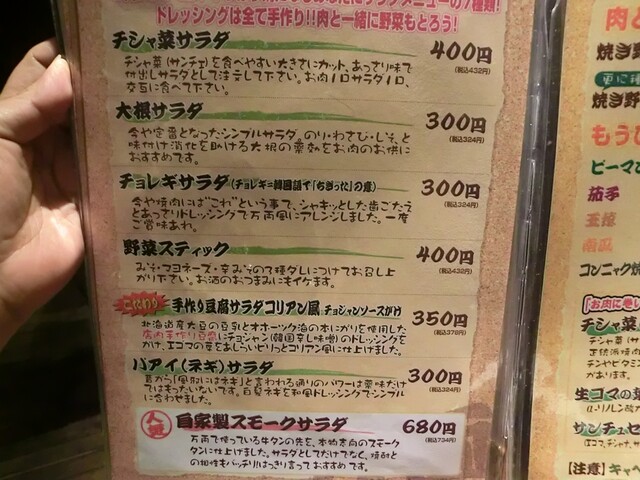 ドレッシングは全て手作り!!肉と一緒に野菜もとろう!
チシャ菜サラダ 400円
(税込432円)
チシャ菜(サンチェ)を食べやすい大きさにカット、あっさり味で
仕出しサラダとして注文して下さい。お肉1口サラダ1口、
交互に食べて下さい。
大根サラダ 300円
(税込324円)
今や定番となったシンプルサラダ。のり・わさび・しそ、と
味付け消化を助ける大根の薬効をお肉のお供に
おすすめです。
チョレギサラダ(チョレギ=韓国語で「ちぎった」の意) 300円
(税込324円)
今や焼肉には"これ"という事で、シャキッとした歯ごたえ
とあっさりドレッシングで万両風にアレンジしました。一度
ご賞味あれ。
野菜スティック 400円
(税込432円)
みそ・マヨネーズ・辛みその3種ダレにつけてお召し上
がり下さい。お酒のおつまみにもイケます。
こだわり 手作り豆腐サラダコリアン風 チョジャンソースがけ 350円
(税込378円)
北海道産大豆の豆乳とオホーツク海の本にがりを使用した
店内手作り豆腐にチョジャン(韓国辛し味噌)のドレッシングを
かけ、エゴマの葉をあしらいピリっとコリアン風に仕上げました。
パアイ(ネギ)サラダ 300円
(税込324円)
昔から「風邪にはネギ」と言われる通りのパワーは薬味だけ
ではもったいないです。白髪ネギを和風ドレッシングでシンプル
に合わせました。
人気 自家製スモークサラダ 680円
(税込734円)
万両で使っている牛タンの先を、本格志向のスモーク
タンに仕上げました。サラダとしてだけでなく、焼酎と
の相性もバッチリ!はっきり言っておすすめです。
焼き野
更に種
焼き野
もうひ
ピーマ
茄子
玉葱
南瓜
コンニャク焼
「お肉に巻い
チシャ菜
生ゴマの葉
サンチュセ
【注意】キャベ